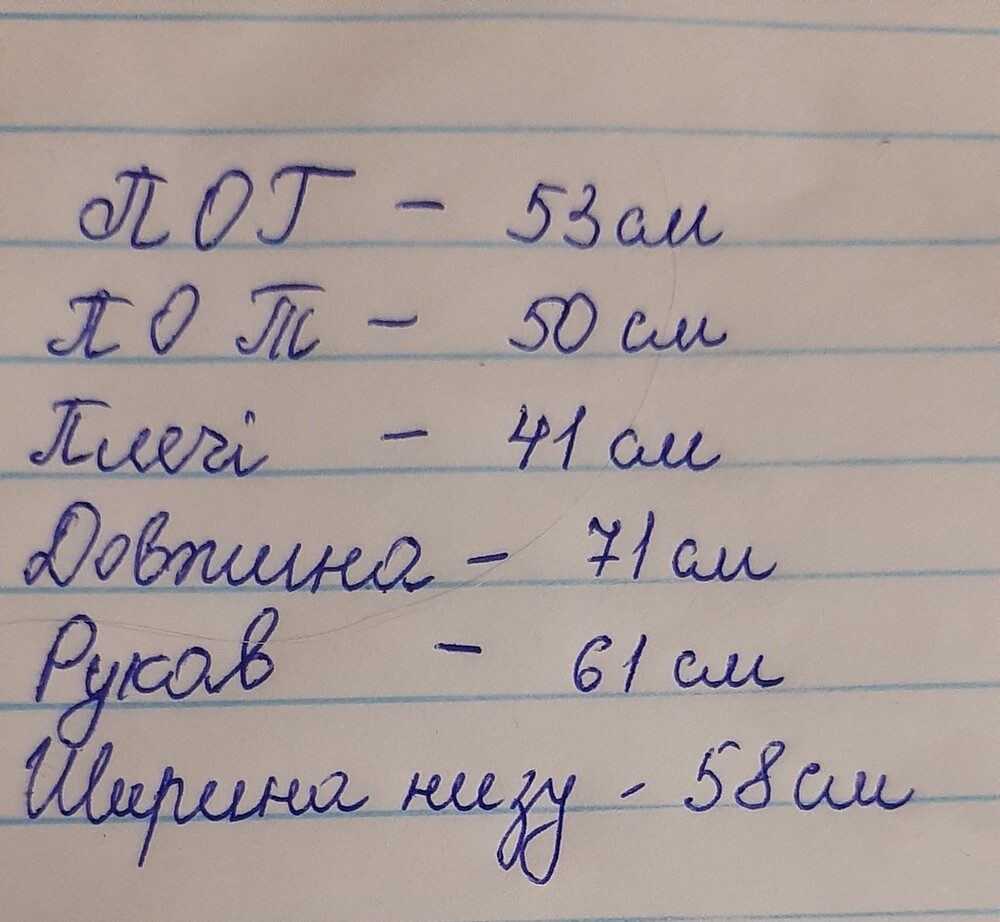 ПОГ - 53 см
ПОТ - 50 см
Плечі - 41 см
Довжина - 71 см
Рукав - 61 см
Ширина низу - 58 см